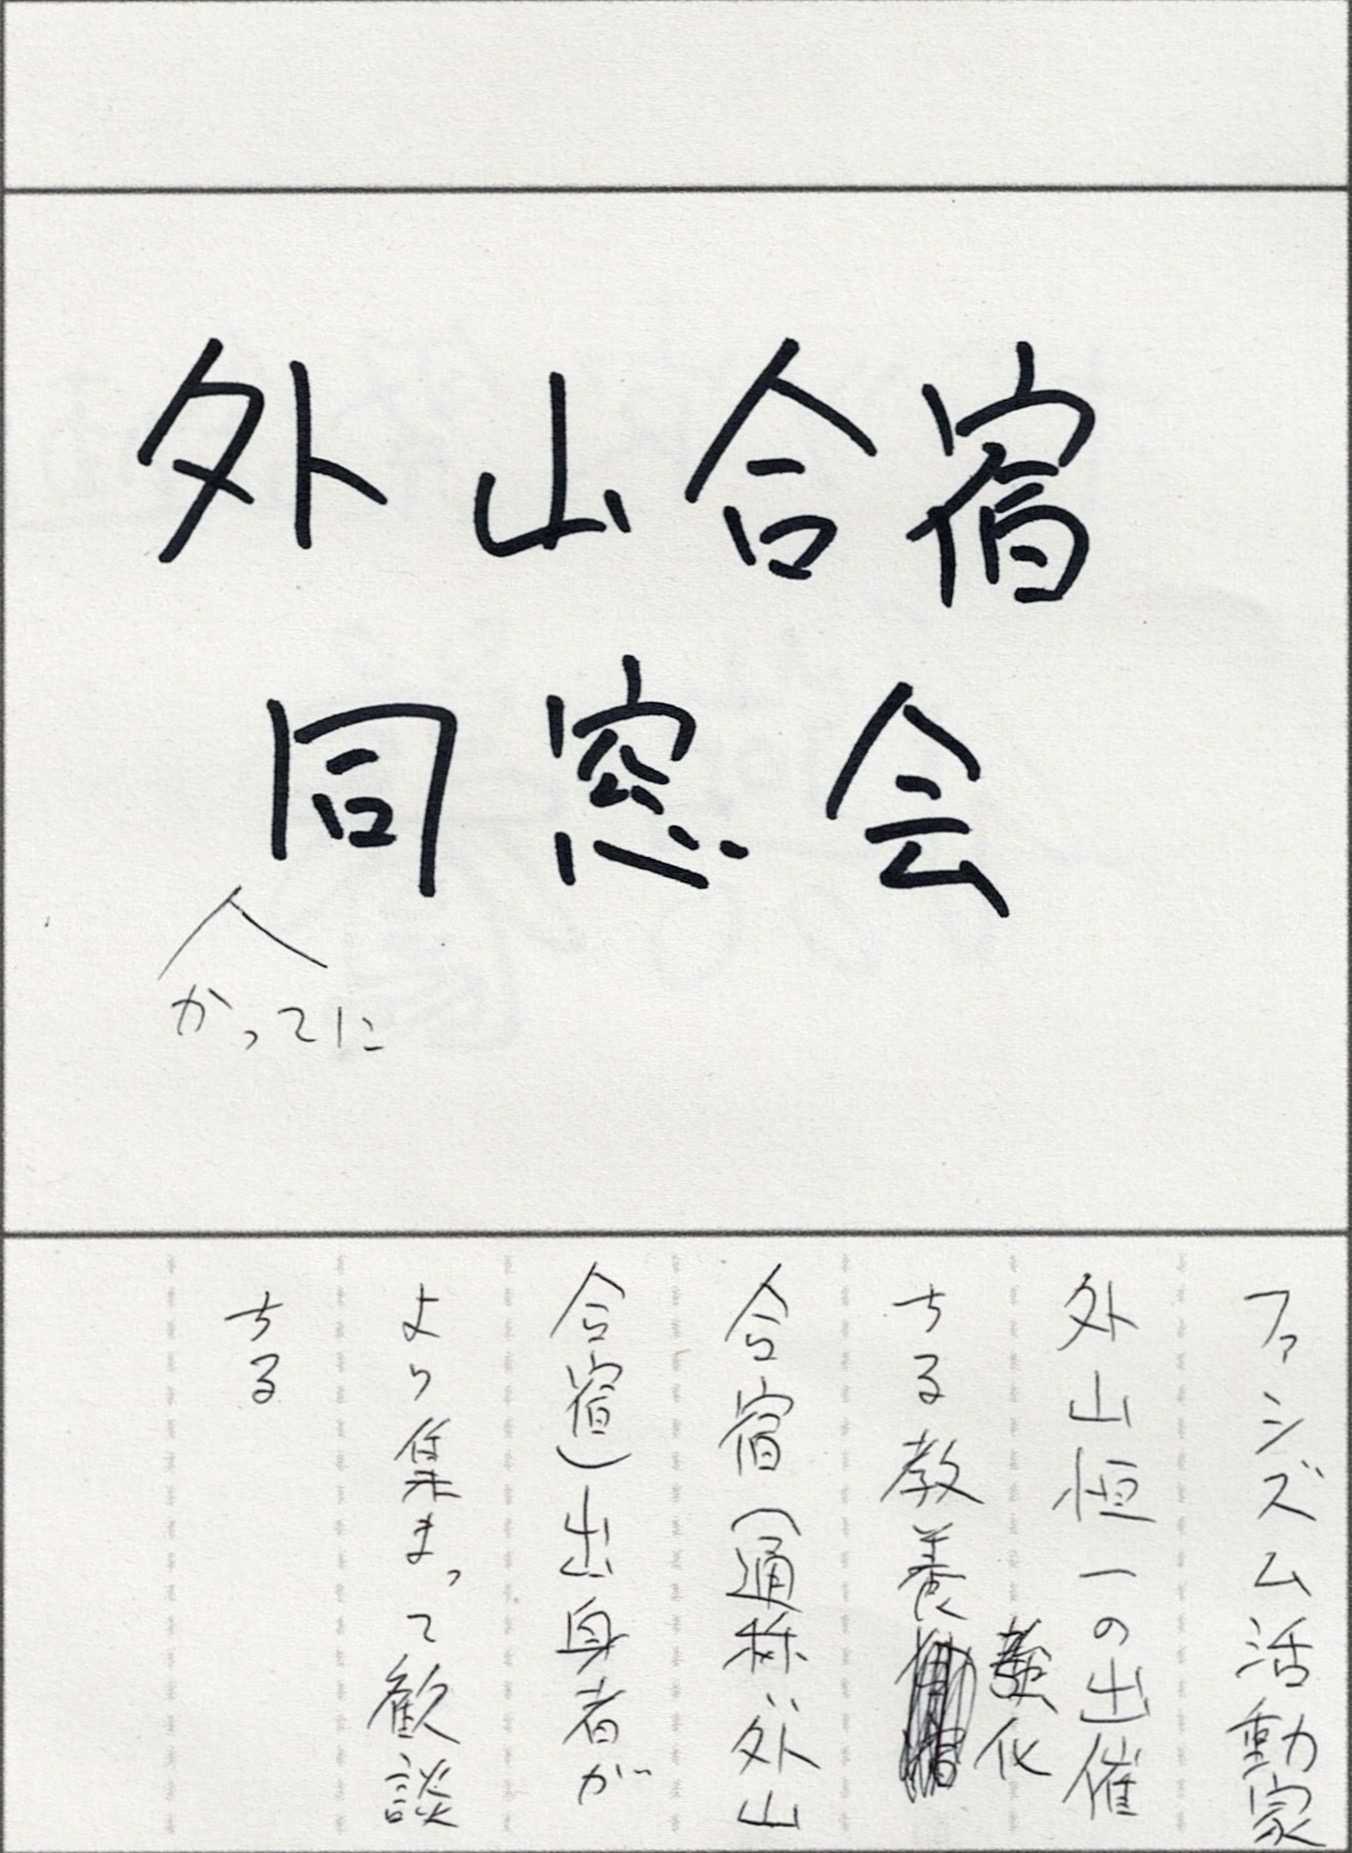 外山合宿
同窓会
かってに
ファシズム活動家
外山恒一の出催
する教養強化
合宿（通称〝外山
合宿）出身者が
より集まって歓談
する